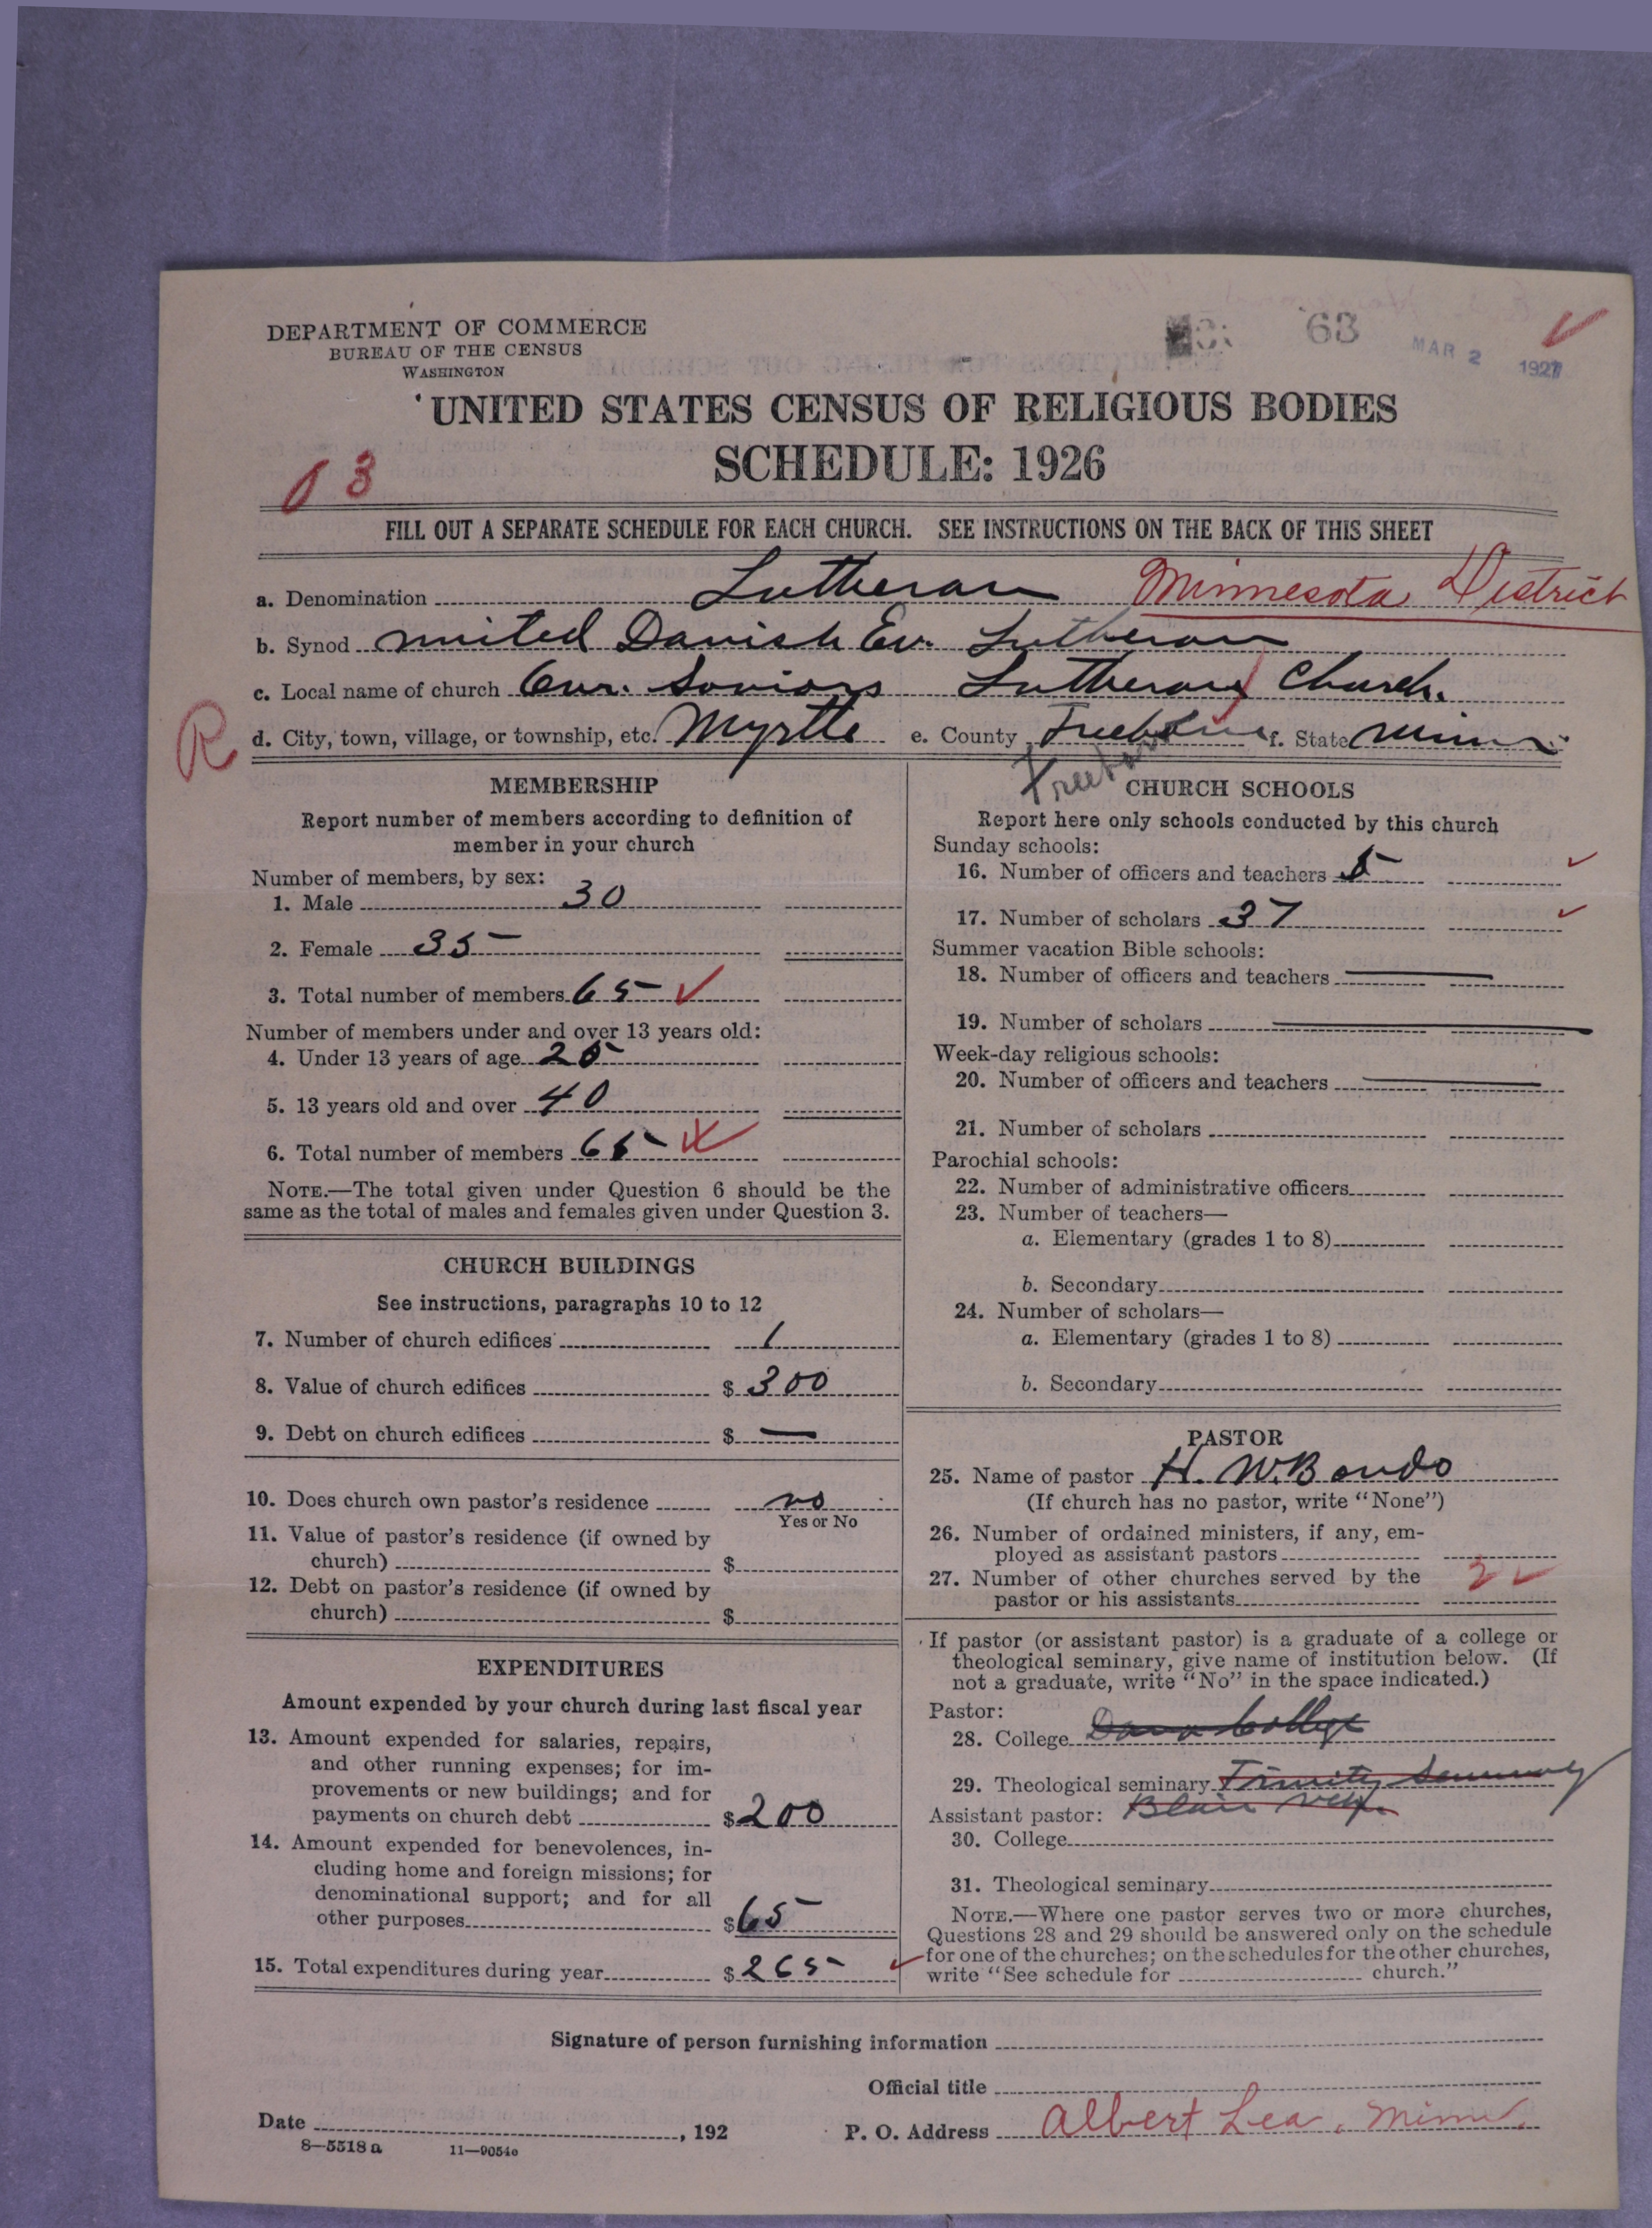 DEPARTMENT OF COMMERCE
BUREAU OF THE CENSUS
WASHINGTON
63
MAR 2 1927
UNITED STATES CENSUS OF RELIGIOUS BODIES
SCHEDULE: 1926
03
FILL OUT A SEPARATE SCHEDULE FOR EACH CHURCH. SEE INSTRUCTIONS ON THE BACK OF THIS SHEET
a. Denomination Lutheran Minnesota District
b. Synod United Danish Ev. Lutheran
c. Local name of church Our Saviors Lutheran Church.
R
d. City, town, village, or township, etc. Myrtle e. County Freeborn f. State Minn
MEMBERSHIP
Report number of members according to definition of
member in your church
Number of members, by sex:
1. Male 30
2. Female 35
3. Total number of members 65
Number of members under and over 13 years old:
4. Under 13 years of age 25
5. 13 years old and over 40
6. Total number of members 65
NOTE.—The total given under Question 6 should be the
same as the total of males and females given under Question 3.
CHURCH BUILDINGS
See instructions, paragraphs 10 to 12
7. Number of church edifices 1
8. Value of church edifices $ 300
9. Debt on church edifices $ —
10. Does church own pastor's residence no
Yes or No
11. Value of pastor's residence (if owned by
church) $
12. Debt on pastor's residence (if owned by
church) $
EXPENDITURES
Amount expended by your church during last fiscal year
13. Amount expended for salaries, repairs,
and other running expenses; for im-
provements or new buildings; and for
payments on church debt $ 200
14. Amount expended for benevolences, in-
cluding home and foreign missions; for
denominational support; and for all
other purposes $ 65
15. Total expenditures during year $ 265
Freeborn
CHURCH SCHOOLS
Report here only schools conducted by this church
Sunday schools:
16. Number of officers and teachers 5
17. Number of scholars 37
Summer vacation Bible schools:
18. Number of officers and teachers
19. Number of scholars
Week-day religious schools:
20. Number of officers and teachers
21. Number of scholars
Parochial schools:
22. Number of administrative officers
23. Number of teachers—
a. Elementary (grades 1 to 8)
b. Secondary
24. Number of scholars—
a. Elementary (grades 1 to 8)
b. Secondary
PASTOR
25. Name of pastor H. W. Bondo
(If church has no pastor, write "None")
26. Number of ordained ministers, if any, em-
ployed as assistant pastors
27. Number of other churches served by the 2
pastor or his assistants
If pastor (or assistant pastor) is a graduate of a college or
theological seminary, give name of institution below. (If
not a graduate, write "No" in the space indicated.)
Pastor:
28. College Dana College
29. Theological seminary Trinity Seminary
Assistant pastor: Blair Nebr.
30. College
31. Theological seminary
NOTE.—Where one pastor serves two or more churches,
Questions 28 and 29 should be answered only on the schedule
for one of the churches; on the schedules for the other churches,
write "See schedule for church."
Signature of person furnishing information
Official title
Date , 192
P. O. Address Albert Lea, Minn.
8—5518 a 11—9054c